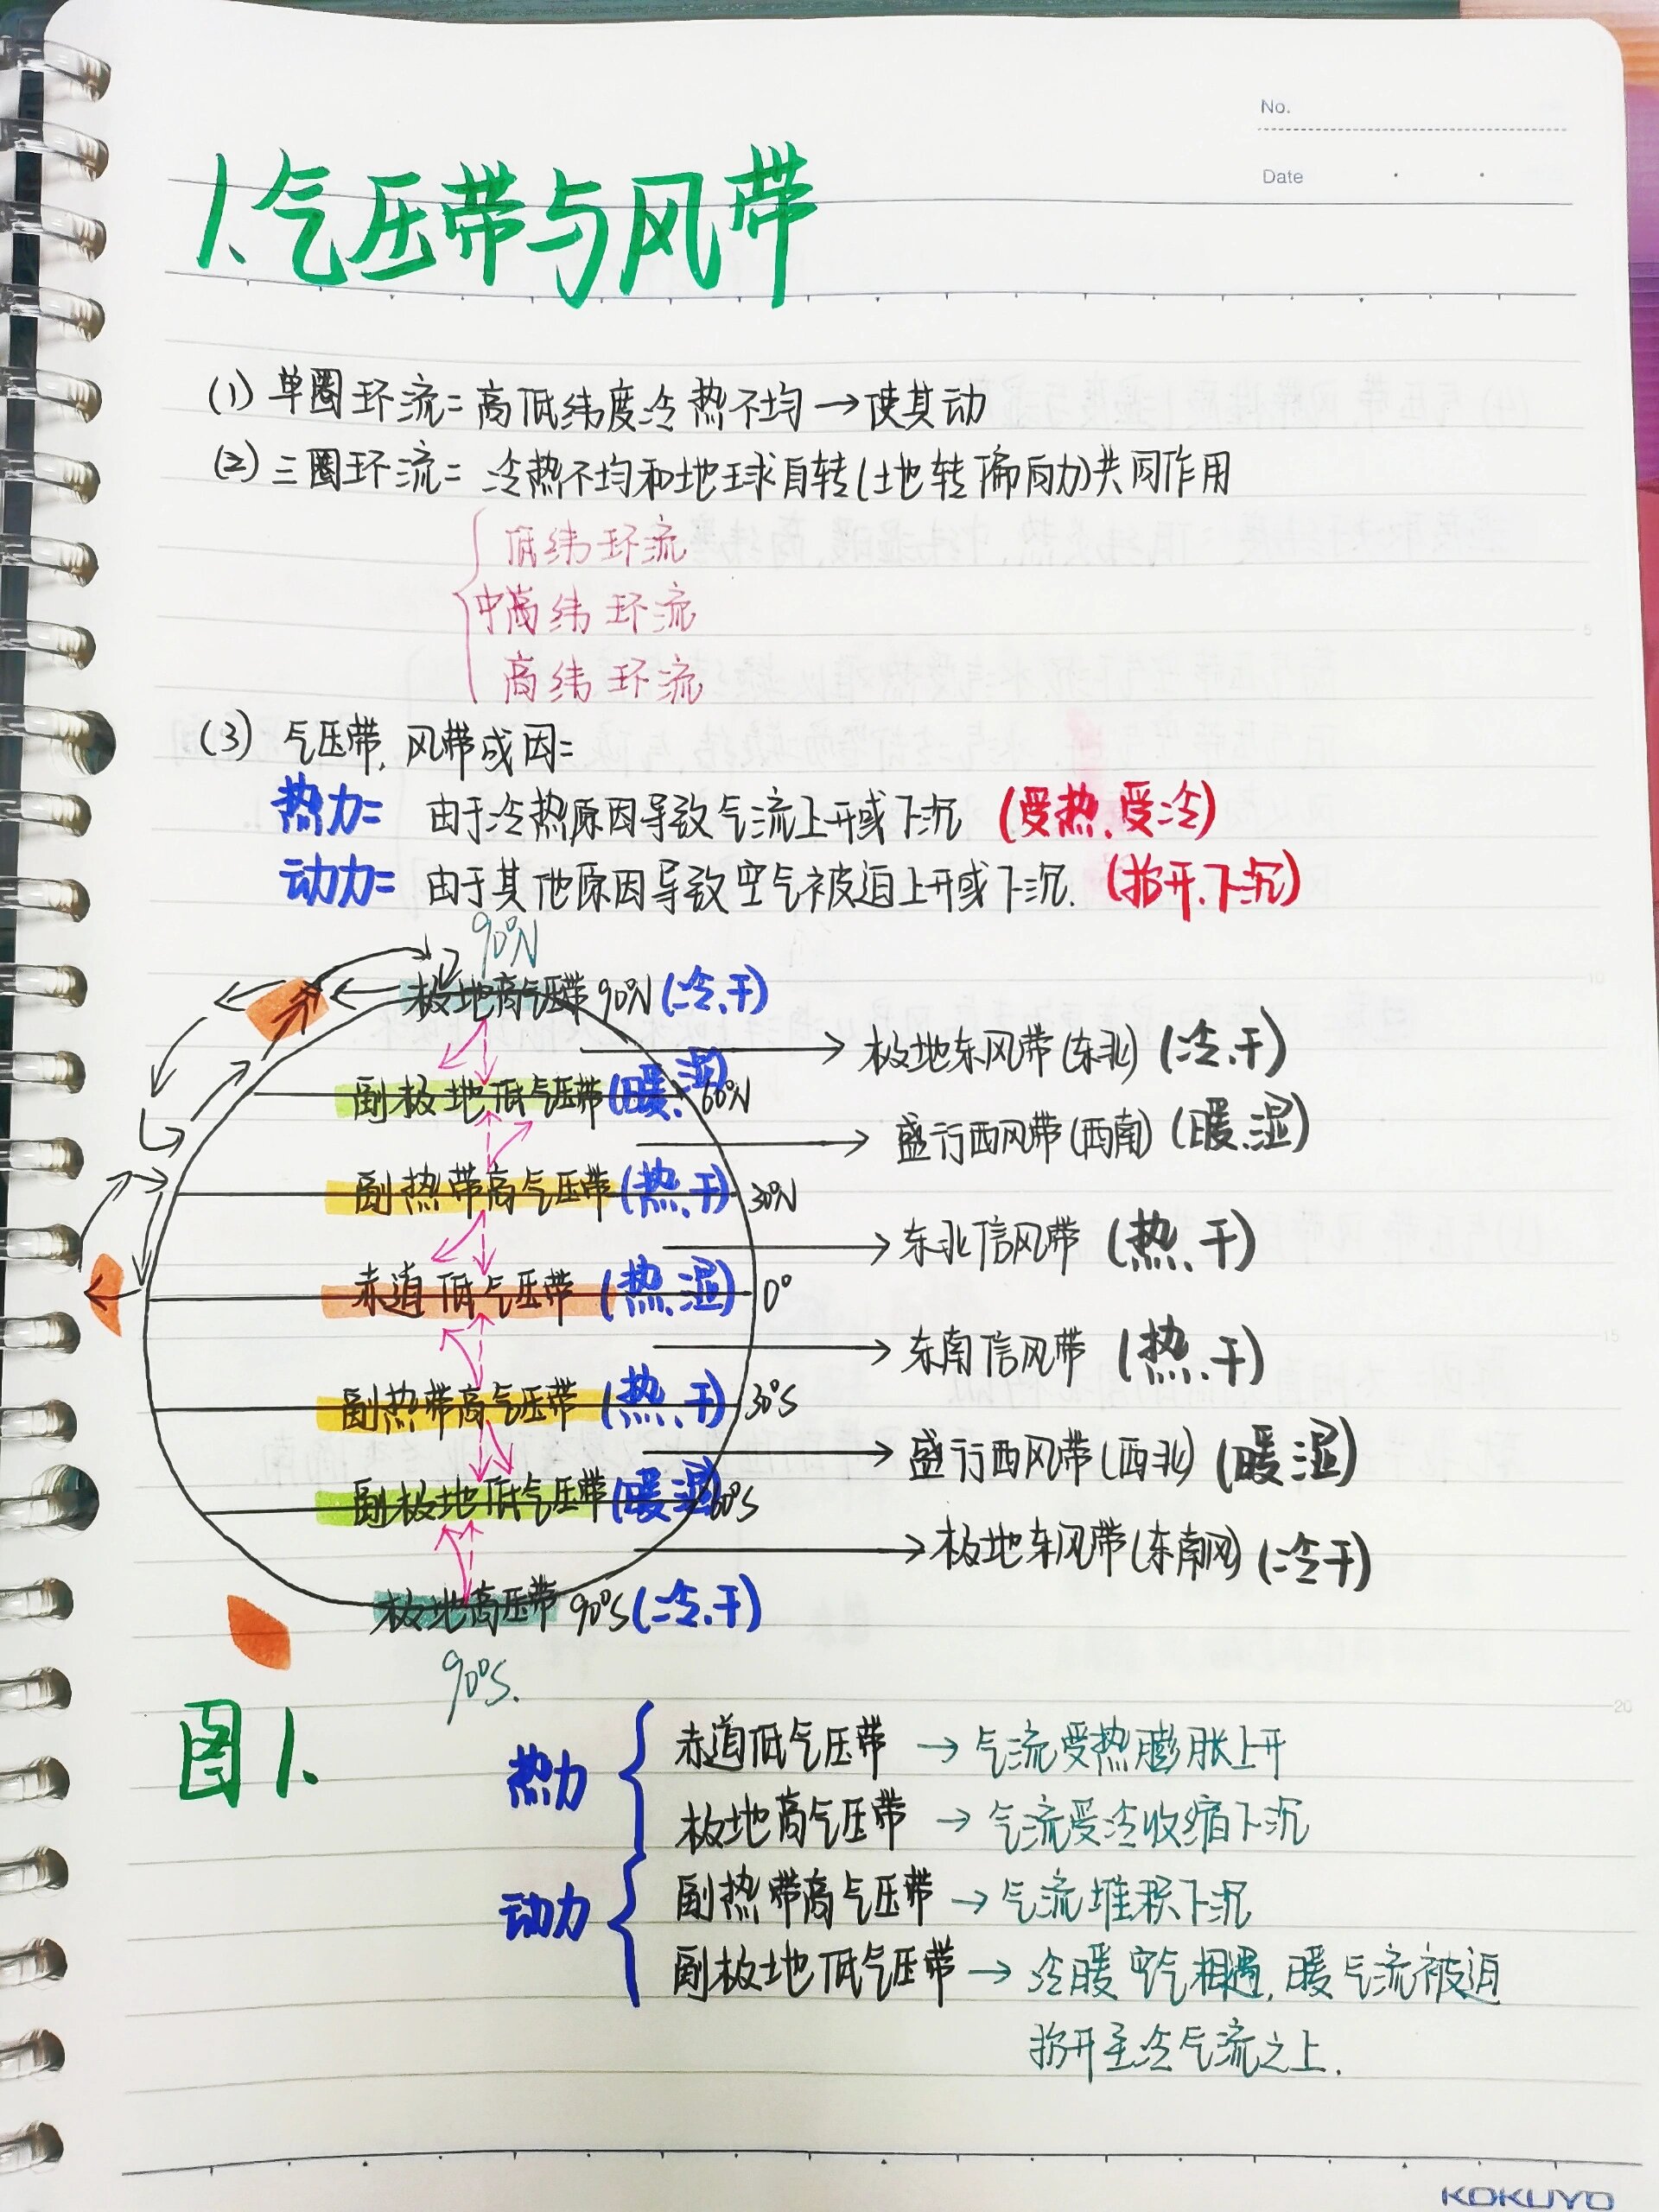 No.
Date
1.气压带与风带
(1) 单圈环流: 高低纬度冷热不均→使其动
(2) 三圈环流: 冷热不均和地球自转(地转偏向力)共同作用
低纬环流
中高纬环流
高纬环流
(3) 气压带, 风带成因:
热力: 由于冷热原因导致气流上升或下沉 (受热.受冷)
动力: 由于其他原因导致空气被迫上升或下沉. (抬升.下沉)
90°N
极地高气压带 90°N (冷.干)
极地东风带(东北) (冷.干)
副极地低气压带 (暖.湿) 60°N
盛行西风带(西南) (暖.湿)
副热带高气压带 (热.干) 30°N
东北信风带 (热.干)
赤道低气压带 (热.湿) 0°
东南信风带 (热.干)
副热带高气压带 (热.干) 30°S
盛行西风带(西北) (暖湿)
副极地低气压带 (暖.湿) 60°S
极地东风带(东南风) (冷干)
极地高压带 90°S (冷.干)
90°S.
图1.
热力
赤道低气压带 → 气流受热膨胀上升
极地高气压带 → 气流受冷收缩下沉
动力
副热带高气压带 → 气流堆积下沉
副极地低气压带 → 冷暖空气相遇, 暖气流被迫
抬升至冷气流之上.
KOKUYO